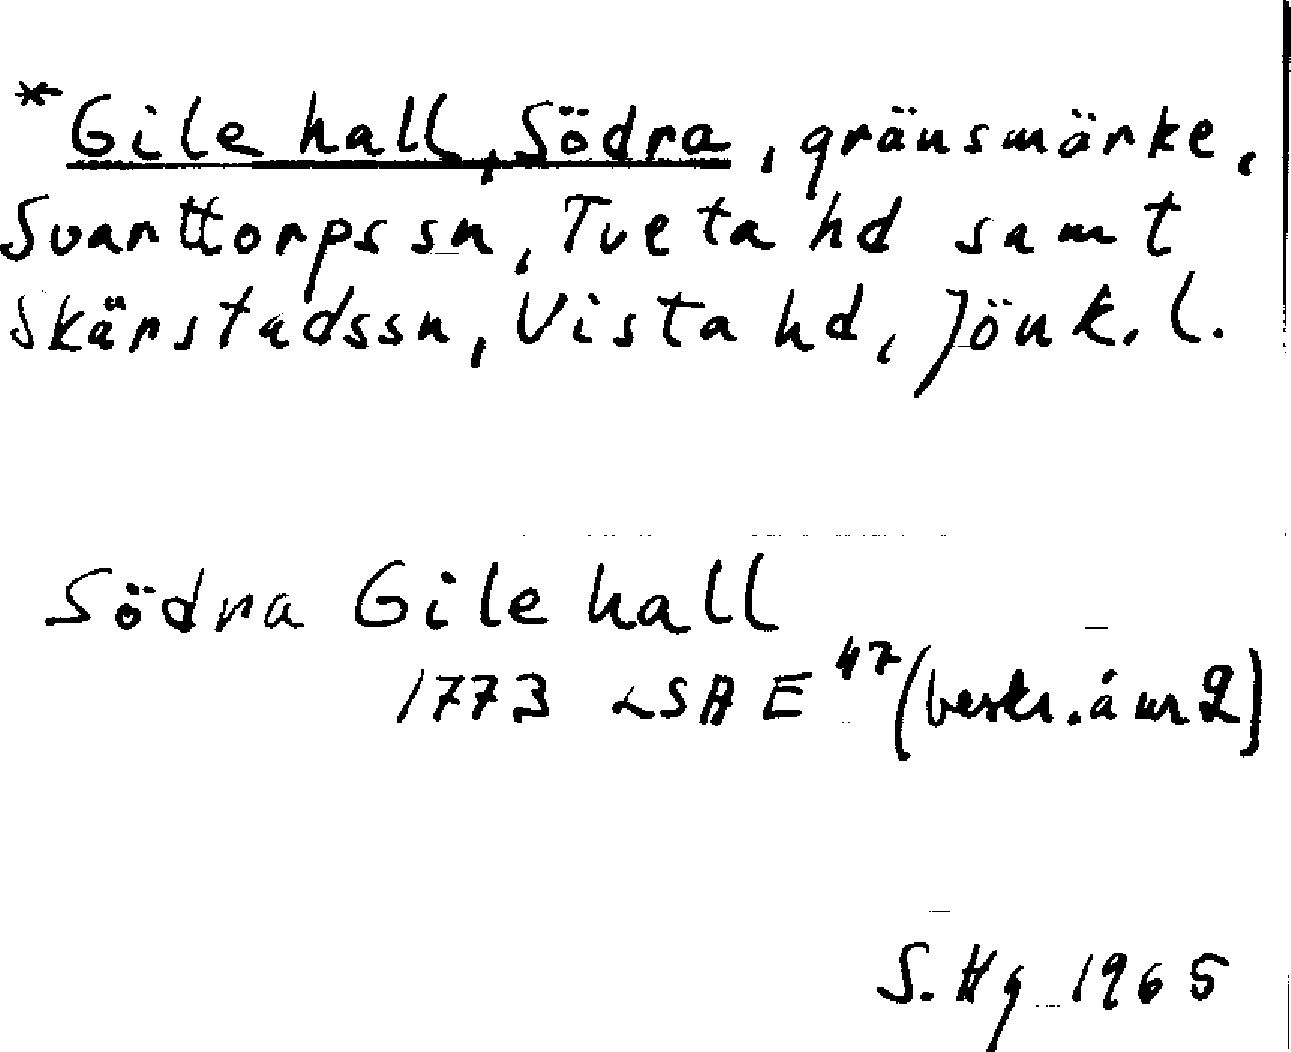 *Gile hall, Södra, gränsmärke,
Svarttorps sn, Tveta hd samt
Skärstads sn, Vista hd, Jönk. l.
Södra Gile hall
1773 LSA E 47 (beskr. å nr 2)
S. Hg 1965